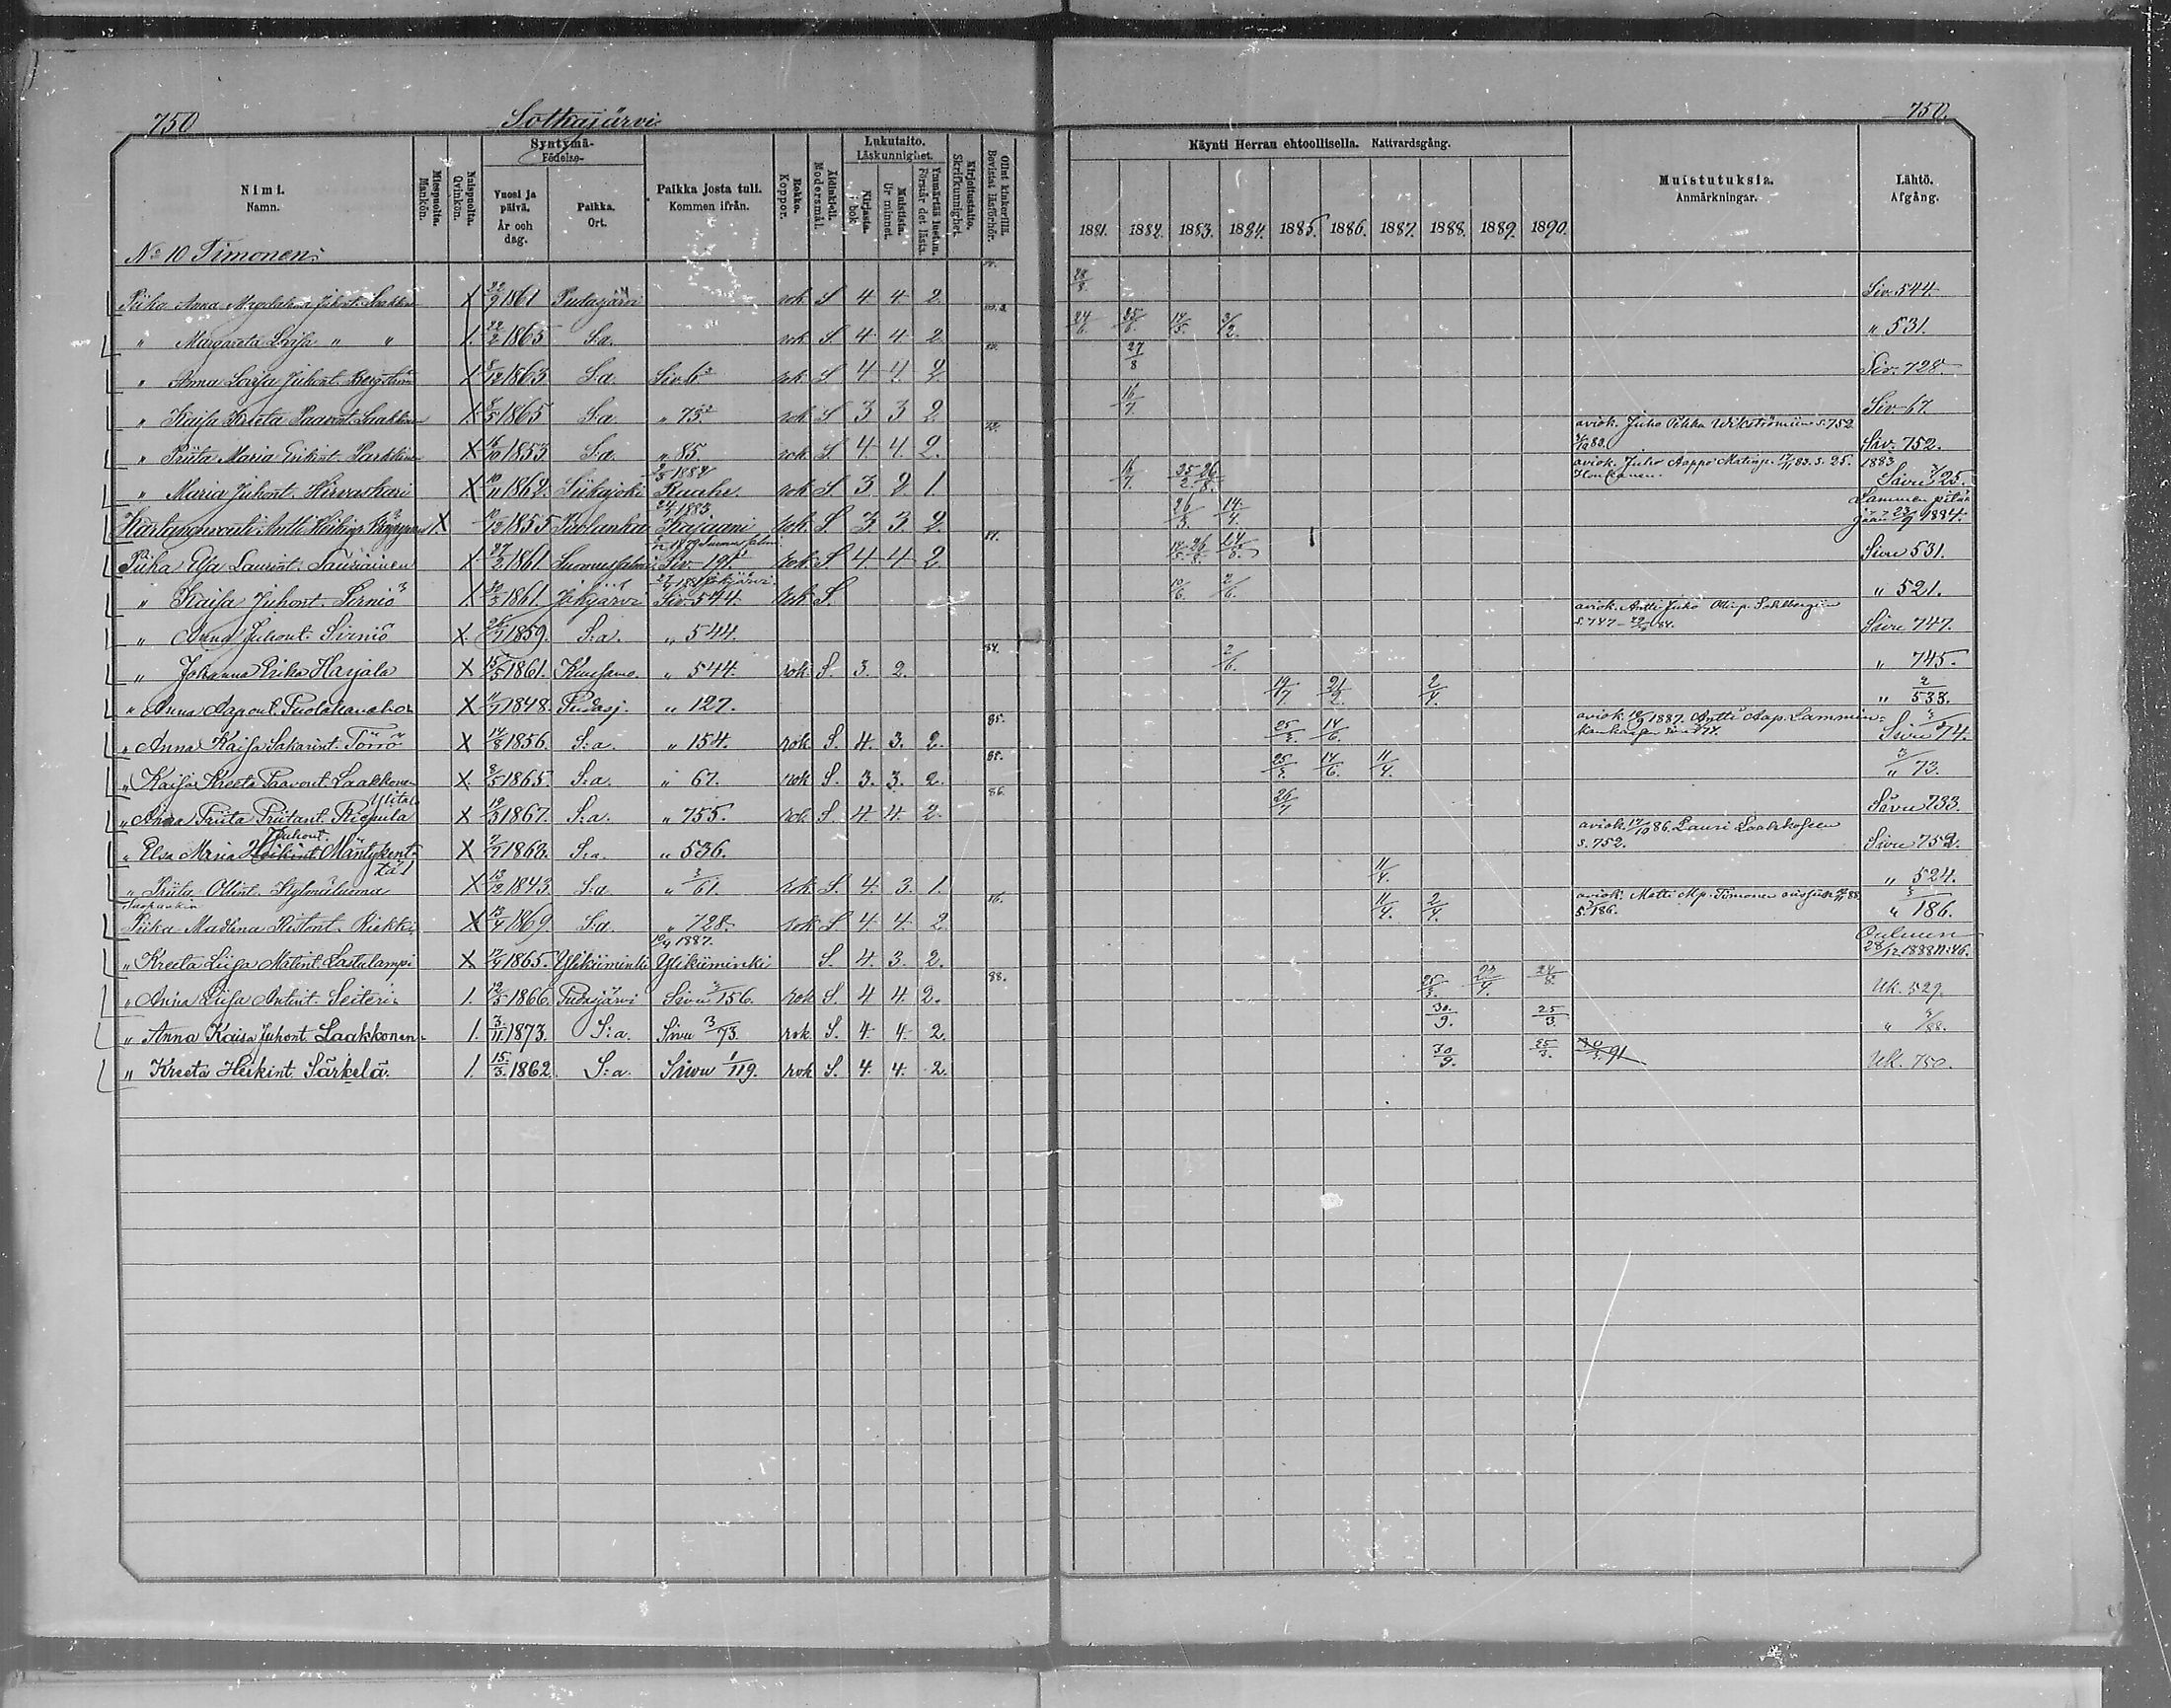 750 Sotkajärvi 750.
Nimi. Namn.
Miespuolta. Mankön.
Naispuolta. Qvinkön.
Syntymä- Födelse-
Vuosi ja päivä. År och dag.
Paikka. Ort.
Paikka josta tuli. Kommen ifrån.
Rokko. Koppor.
Äidinkieli. Modersmål.
Lukutaito. Läskunnighet.
Kirjasta. I bok.
Muistista. Ur minnet.
Ymmärtää luet.m. Förstår det lästa.
Kirjoitustaito. Skrifkunnighet.
Ollut kinkerillä. Bevistat läsförhör.
Käynti Herran ehtoollisella. Nattvardsgång.
1881. 1882. 1883. 1884. 1885. 1886. 1887. 1888. 1889. 1890.
Muistutuksia. Anmärkningar.
Lähtö. Afgång.
No 10 Timonen.
Piika Anna Magdalena Juhont. X 22/9 1861 Pudasjärvi rok S 4 4 2 28/8 Siv. 544.
" Margareta Liisa " " 1. 22/2 1865 S:a. rok S. 4 4 2 24/6 25/6 14/5 3/2 " 531.
" Anna Juhont. Bergström 1 /12 1863 S:a Siv. 6 rok S. 4 4 2. 27/8 Siv. 728
" Kaisa Kreeta Paavont. Laakkonen 1. 8/5 1865 S:a " 73 rok S 3 3 2 16/7. Siv. 67
" Priita Maria Erikint. Parkkinen X 16/10 1853 S:a. " 85. rok S. 4 4. 2. aviok. Juho Pekka Wikströmiin s. 752 Siv. 752.
" Maria Juhont. Hirvaskari X 10/11 1862. Siikajoki 2/5 1882 Raahe. rok S 3 2 1. 16/7. 25/2. 26/8. aviok. Juho Aappo Matinp. 17/11 83. s. 25. 1883 Sivu 25.
Antti Heikinp. X. /12 1855 Puolanka 1883 Kajaani rok. S 3 3. 2. 26/3 14/4. Lammin pitäjään 23/9 1884.
Piika Eva Laurint. 1. 27/2 1861 Suomussalmi Siv. 191 rok. S. 4 4 2 26/8. 24/8. Sivu 531.
" Kaisa Juhont. Sirniö 1. /3 1861. Jokijärvi Siv. 544. rok S. 10/6. 2/6. " 521.
" Anna Juhont. Sirniö X. 26/7 1859. S:a. " 544. aviok. Antti Juho s. 747 84. Sivu 747.
" Johanna Erika Harjala X 15/5 1861. Kuusamo " 544. rok S. 3. 2. 84. 2/6. " 745.
" Anna Aapont. X 11/7 1848. Pudasj. " 127. 19/7 21/2 2/4. " 2/533.
" Anna Kaisa Sakarint. Törrö X 14/8 1856. S:a. " 154. rok S. 4. 3. 2. 85. 25/3. 14/6. aviok. 10/9 1887. Antti Aap. Lamminkankaan sivu 74. Sivu 3/74.
" Kaisa Kreeta Paavont. Laakkonen X 8/5 1865. S:a. " 67. rok S. 3. 3. 2. 85. 25/3. 14/6. 11/4. " 3/73.
" Anna Priita Priitant. Riepula X 19/3 1867. S:a. " 755. rok S. 4. 4. 2. 86. 26/7 Sivu 733.
" Elsa Maria Juhont. Mäntykenttä X 7/7 1863. S:a. " 536. aviok. 17/10 86. Lauri s. 752. Sivu 752.
" Priita Ollint. X 13/12 1843. S:a. " 3/61. rok. S. 4. 3. 1. 11/4. " 524.
Piika Madlena Ristont. Riekki X 13/4 1869. S:a. " 728. rok S 4. 4. 2 86. 11/4. 2/4. aviok. Matti Mp. Timonen s. 3/186. " 3/186.
" Kreeta Liisa Matint. Lastulampi X 1865. Ylikiiminki 10/4 1887. Ylikiiminki S. 4. 3. 2. Ouluun 28/12 1888 N:46.
" Anna Liisa Antint. Seiteri 1. 12/5 1866. Pudasjärvi Sivu 3/156. rok S. 4 4. 2. 88. 25/3. 22/4. 24/8. Uk. 529.
" Anna Kaisa Juhont. Laakkonen. 1. 3/11 1873. S:a. Sivu 3/73. rok. S. 4. 4. 2. 30/9. 25/3. " 3/88.
" Kreeta Heikint. Särkelä. 1. 15/3. 1862. S:a. Sivu 1/119. rok S. 4. 4. 2. 30/9. 25/3. 91 Uk. 750.